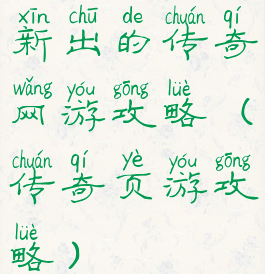 xīn chū de chuán qí
新出的传奇
wǎng yóu gōng lüè
网游攻略（
chuán qí yè yóu gōng
传奇页游攻
lüè
略）